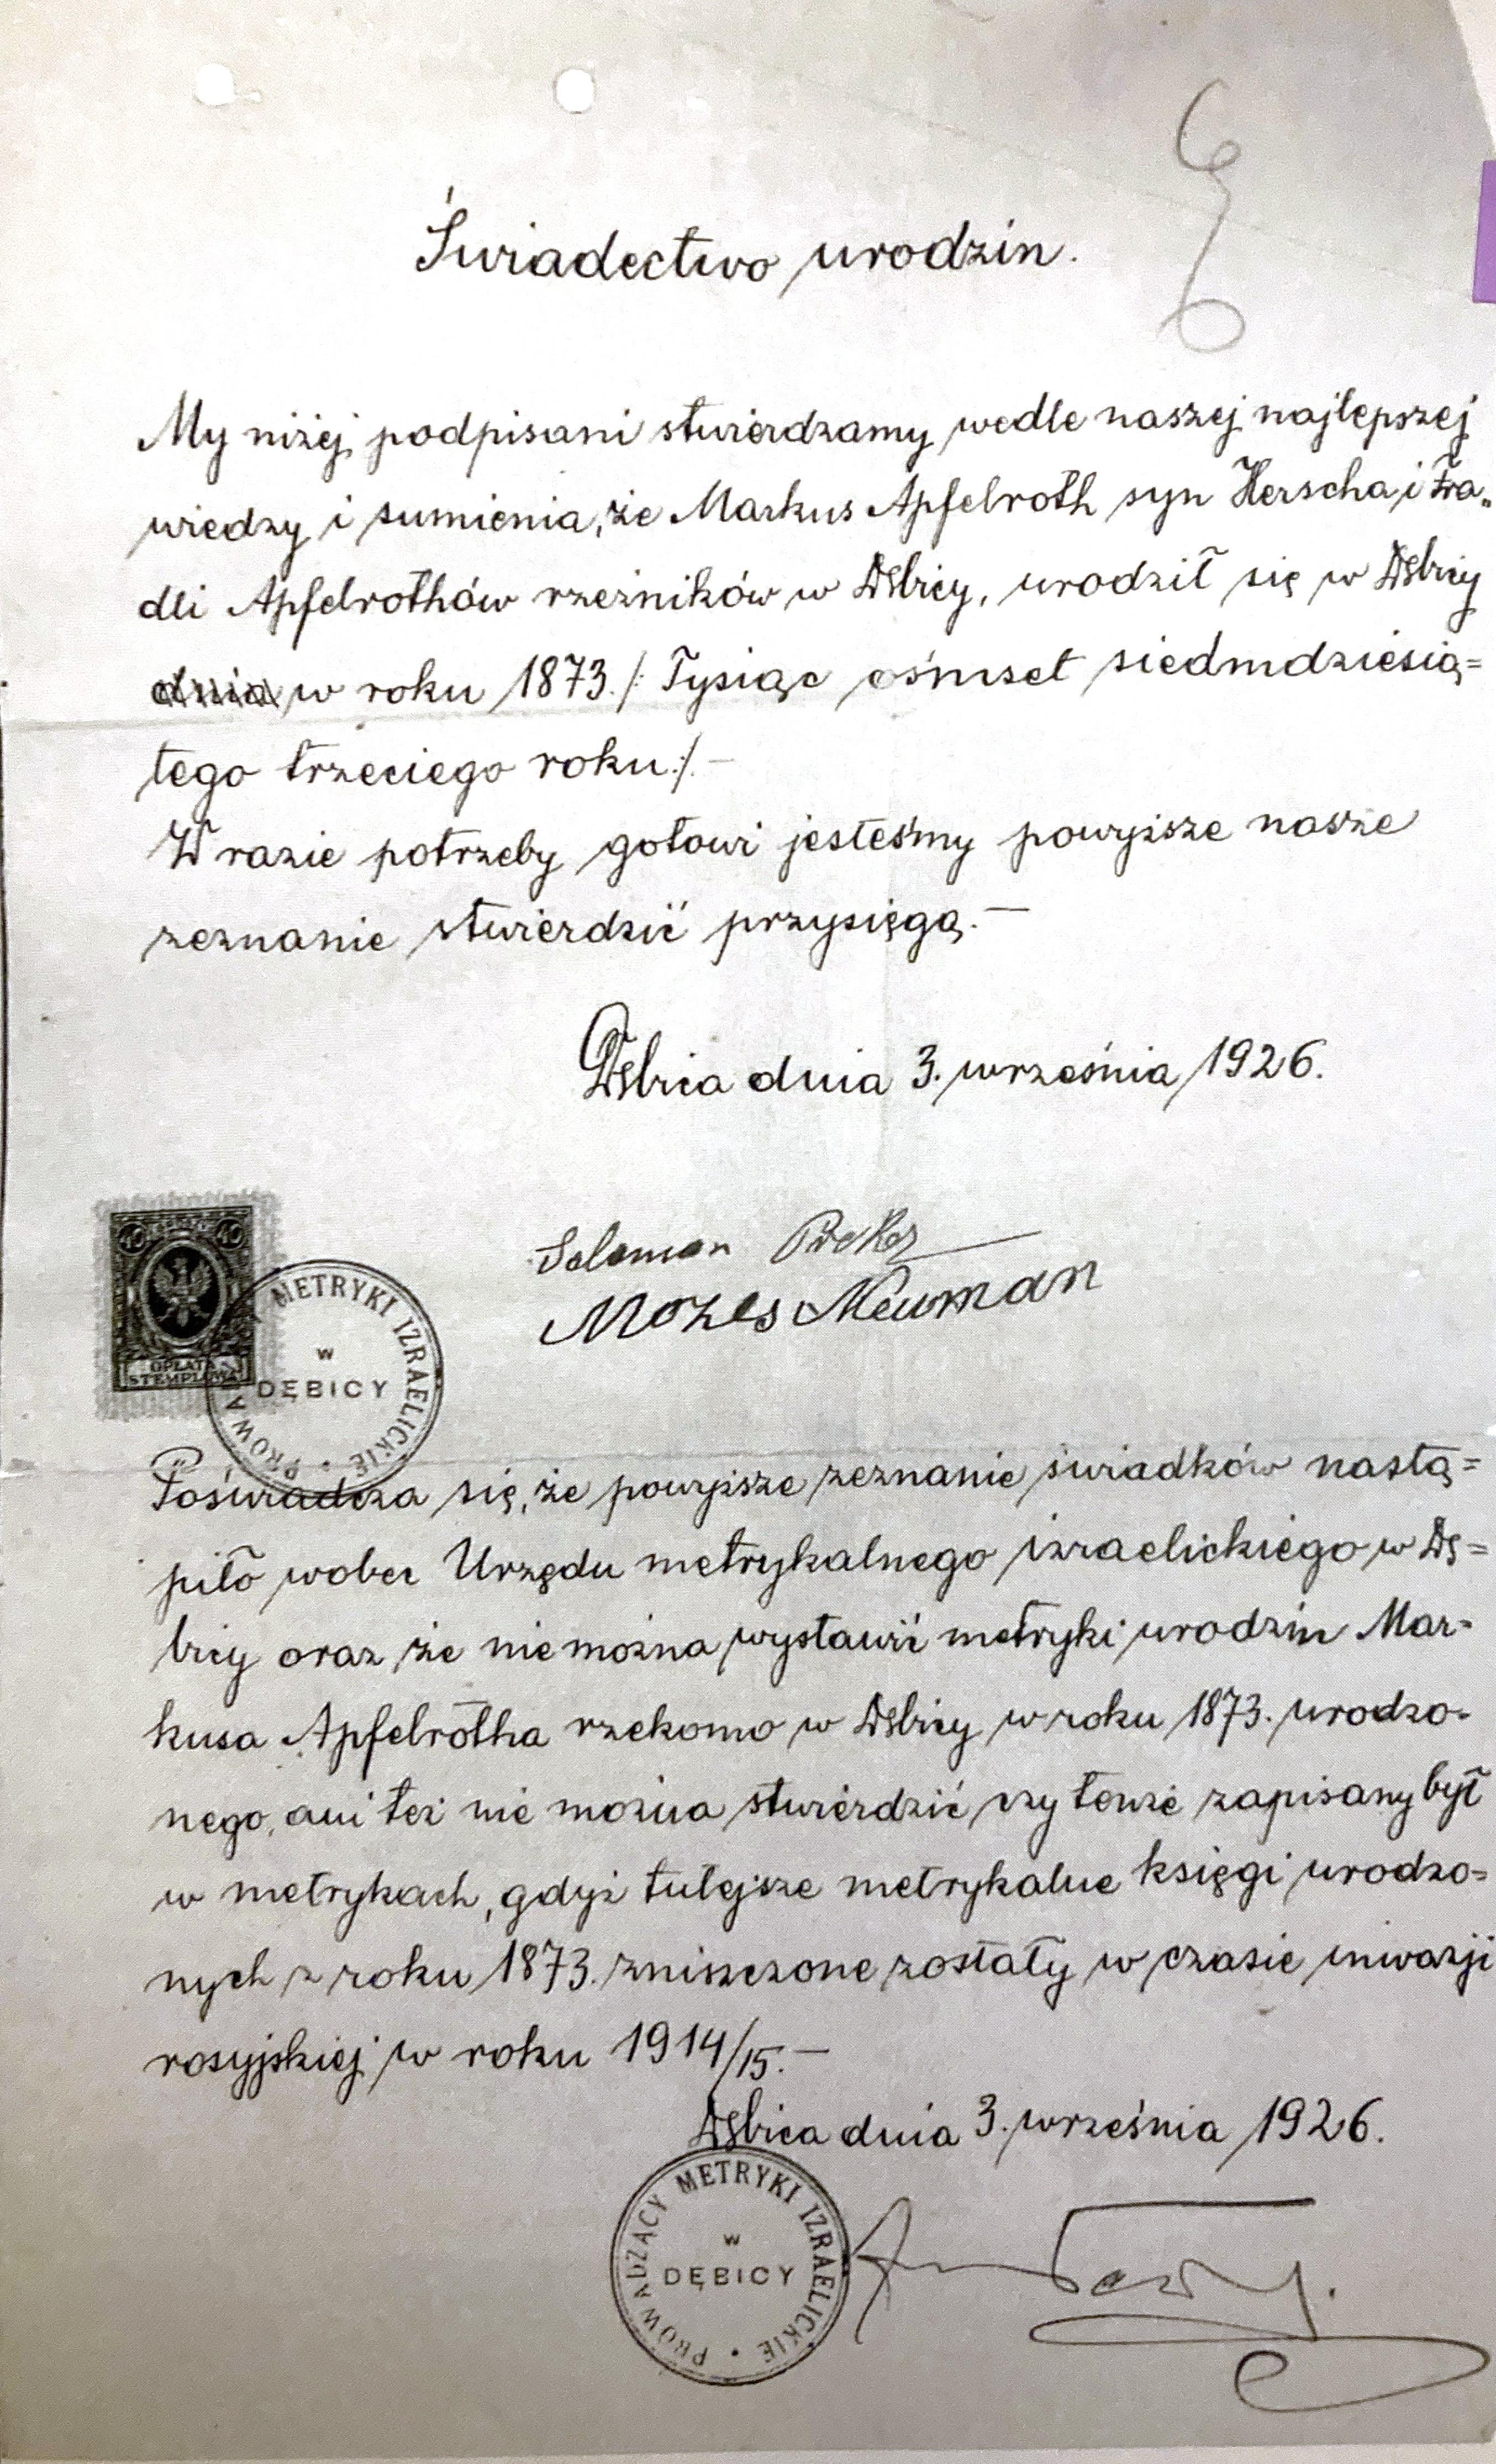 Świadectwo urodzin.
My niżej podpisani stwierdzamy wedle naszej najlepszej
wiedzy i sumienia, że Markus Apfelroth syn Herscha i Fra„
dli Apfelrothów rzeźników w Dębicy, urodził się w Dębicy
dnia w roku 1873. /: Tysiąc ośmset siedmdziesią=
tego trzeciego roku :/. —
W razie potrzeby gotowi jesteśmy powyższe nasze
zeznanie stwierdzić przysięgą. —
Dębica dnia 3. września 1926.
40 40
OPŁATA
STEMPLOWA
PROWA METRYKI IZRAELICKIE
w
DĘBICY
Salomon
Mozes Neuman
Poświadcza się, że powyższe zeznanie świadków nastą=
piło wobec Urzędu metrykalnego izraelickiego w Dę=
bicy oraz że nie można wystawić metryki urodzin Mar=
kusa Apfelrotha rzekomo w Dębicy w roku 1873. urodzo=
nego, ani też nie można stwierdzić czy tenże zapisany był
w metrykach, gdyż tutejsze metrykalne księgi urodzo=
nych z roku 1873. zniszczone zostały w czasie inwazji
rosyjskiej w roku 1914/15. —
Dębica dnia 3. września 1926.
PROWADZĄCY METRYKI IZRAELICKIE
w
DĘBICY